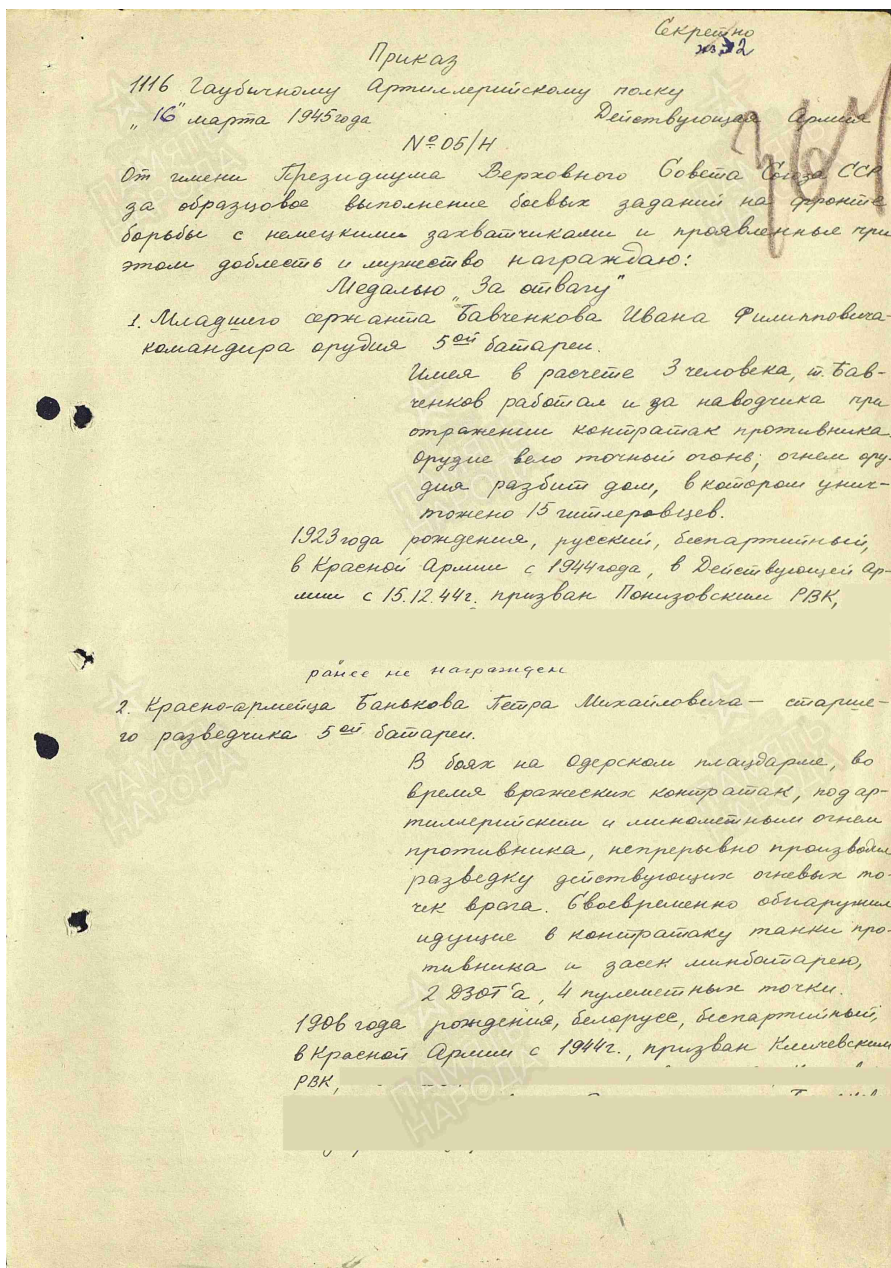 Секретно
экз. 2
Приказ
1116 Гаубичному Артиллерийскому полку
"16" марта 1945 года Действующая Армия
№ 05/Н
От имени Президиума Верховного Совета Союза ССР
за образцовое выполнение боевых заданий на фронте
борьбы с немецкими захватчиками и проявленные при
этом доблесть и мужество награждаю:
Медалью "За отвагу"
1. Младшего сержанта Бавченкова Ивана Филипповича -
командира орудия 5ой батареи.
Имея в расчете 3 человека, т. Бав-
ченков работал и за наводчика при
отражении контратак противника.
Орудие вело точный огонь; огнем ору-
дия разбит дом, в котором унич-
тожено 15 гитлеровцев.
1923 года рождения, русский, беспартийный,
в Красной Армии с 1944 года, в Действующей ар-
мии с 15.12.44г. призван Понизовским РВК,
ранее не награжден
2. Красно-армейца Банькова Петра Михайловича - старше-
го разведчика 5ой батареи.
В боях на Одерском плацдарме, во
время вражеских контратак, под ар-
тиллерийским и минометным огнем
противника, непрерывно производил
разведку действующих огневых то-
чек врага. Своевременно обнаружил
идущие в контратаку танки про-
тивника и засек минбатарею,
2 ДЗОТ'а, 4 пулеметных точки.
1906 года рождения, белорусс, беспартийный,
в Красной Армии с 1944г., призван Кличевским
РВК,
ПАМЯТЬ
НАРОДА